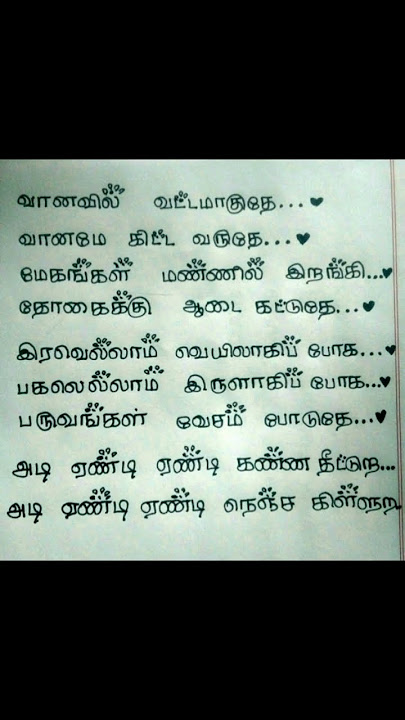 வானவில் வட்டமாகுதே...
வானமே கிட்ட வருதே...
மேகங்கள் மண்ணில் இறங்கி...
தோகைக்கு ஆடை கட்டுதே...
இரவெல்லாம் வெயிலாகிப் போக...
பகலெல்லாம் இருளாகிப் போக...
பருவங்கள் வேசம் போடுதே...
அடி ஏண்டி ஏண்டி கண்ண நீட்டுற...
அடி ஏண்டி ஏண்டி நெஞ்ச கிள்ளுற